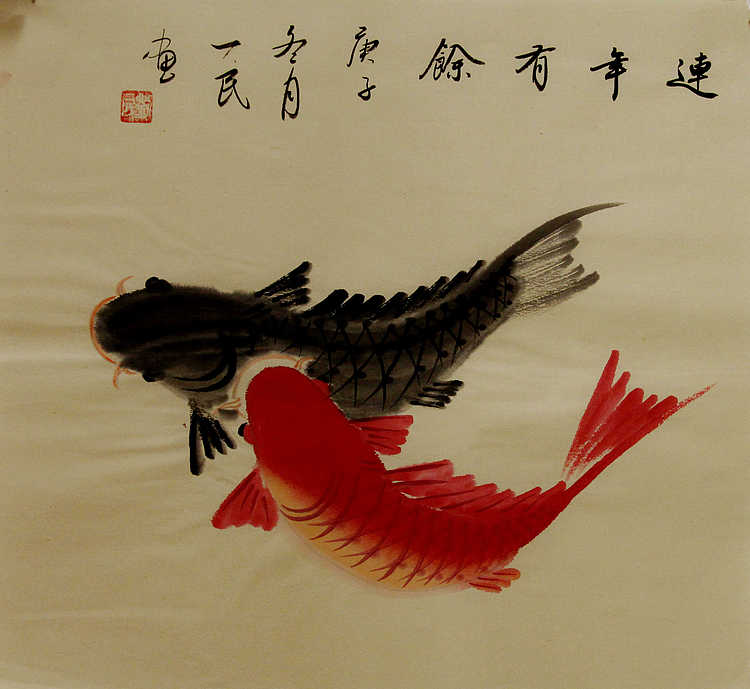 連年有餘
庚子
冬月
一民
画